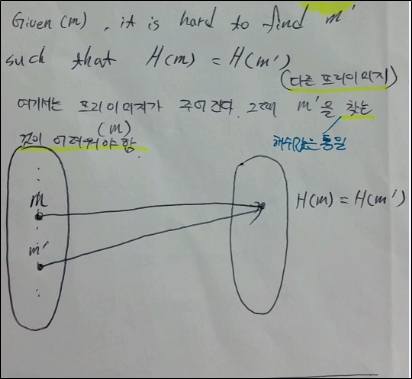 Given (m), it is hard to find m'
such that H(m) = H(m')
(다른 프리이미지)
여기서는 프리이미지가 주어진다. 그때 m'을 찾는
(m)
것이 어려워야 함.
해쉬값은 동일
m
H(m) = H(m')
m'